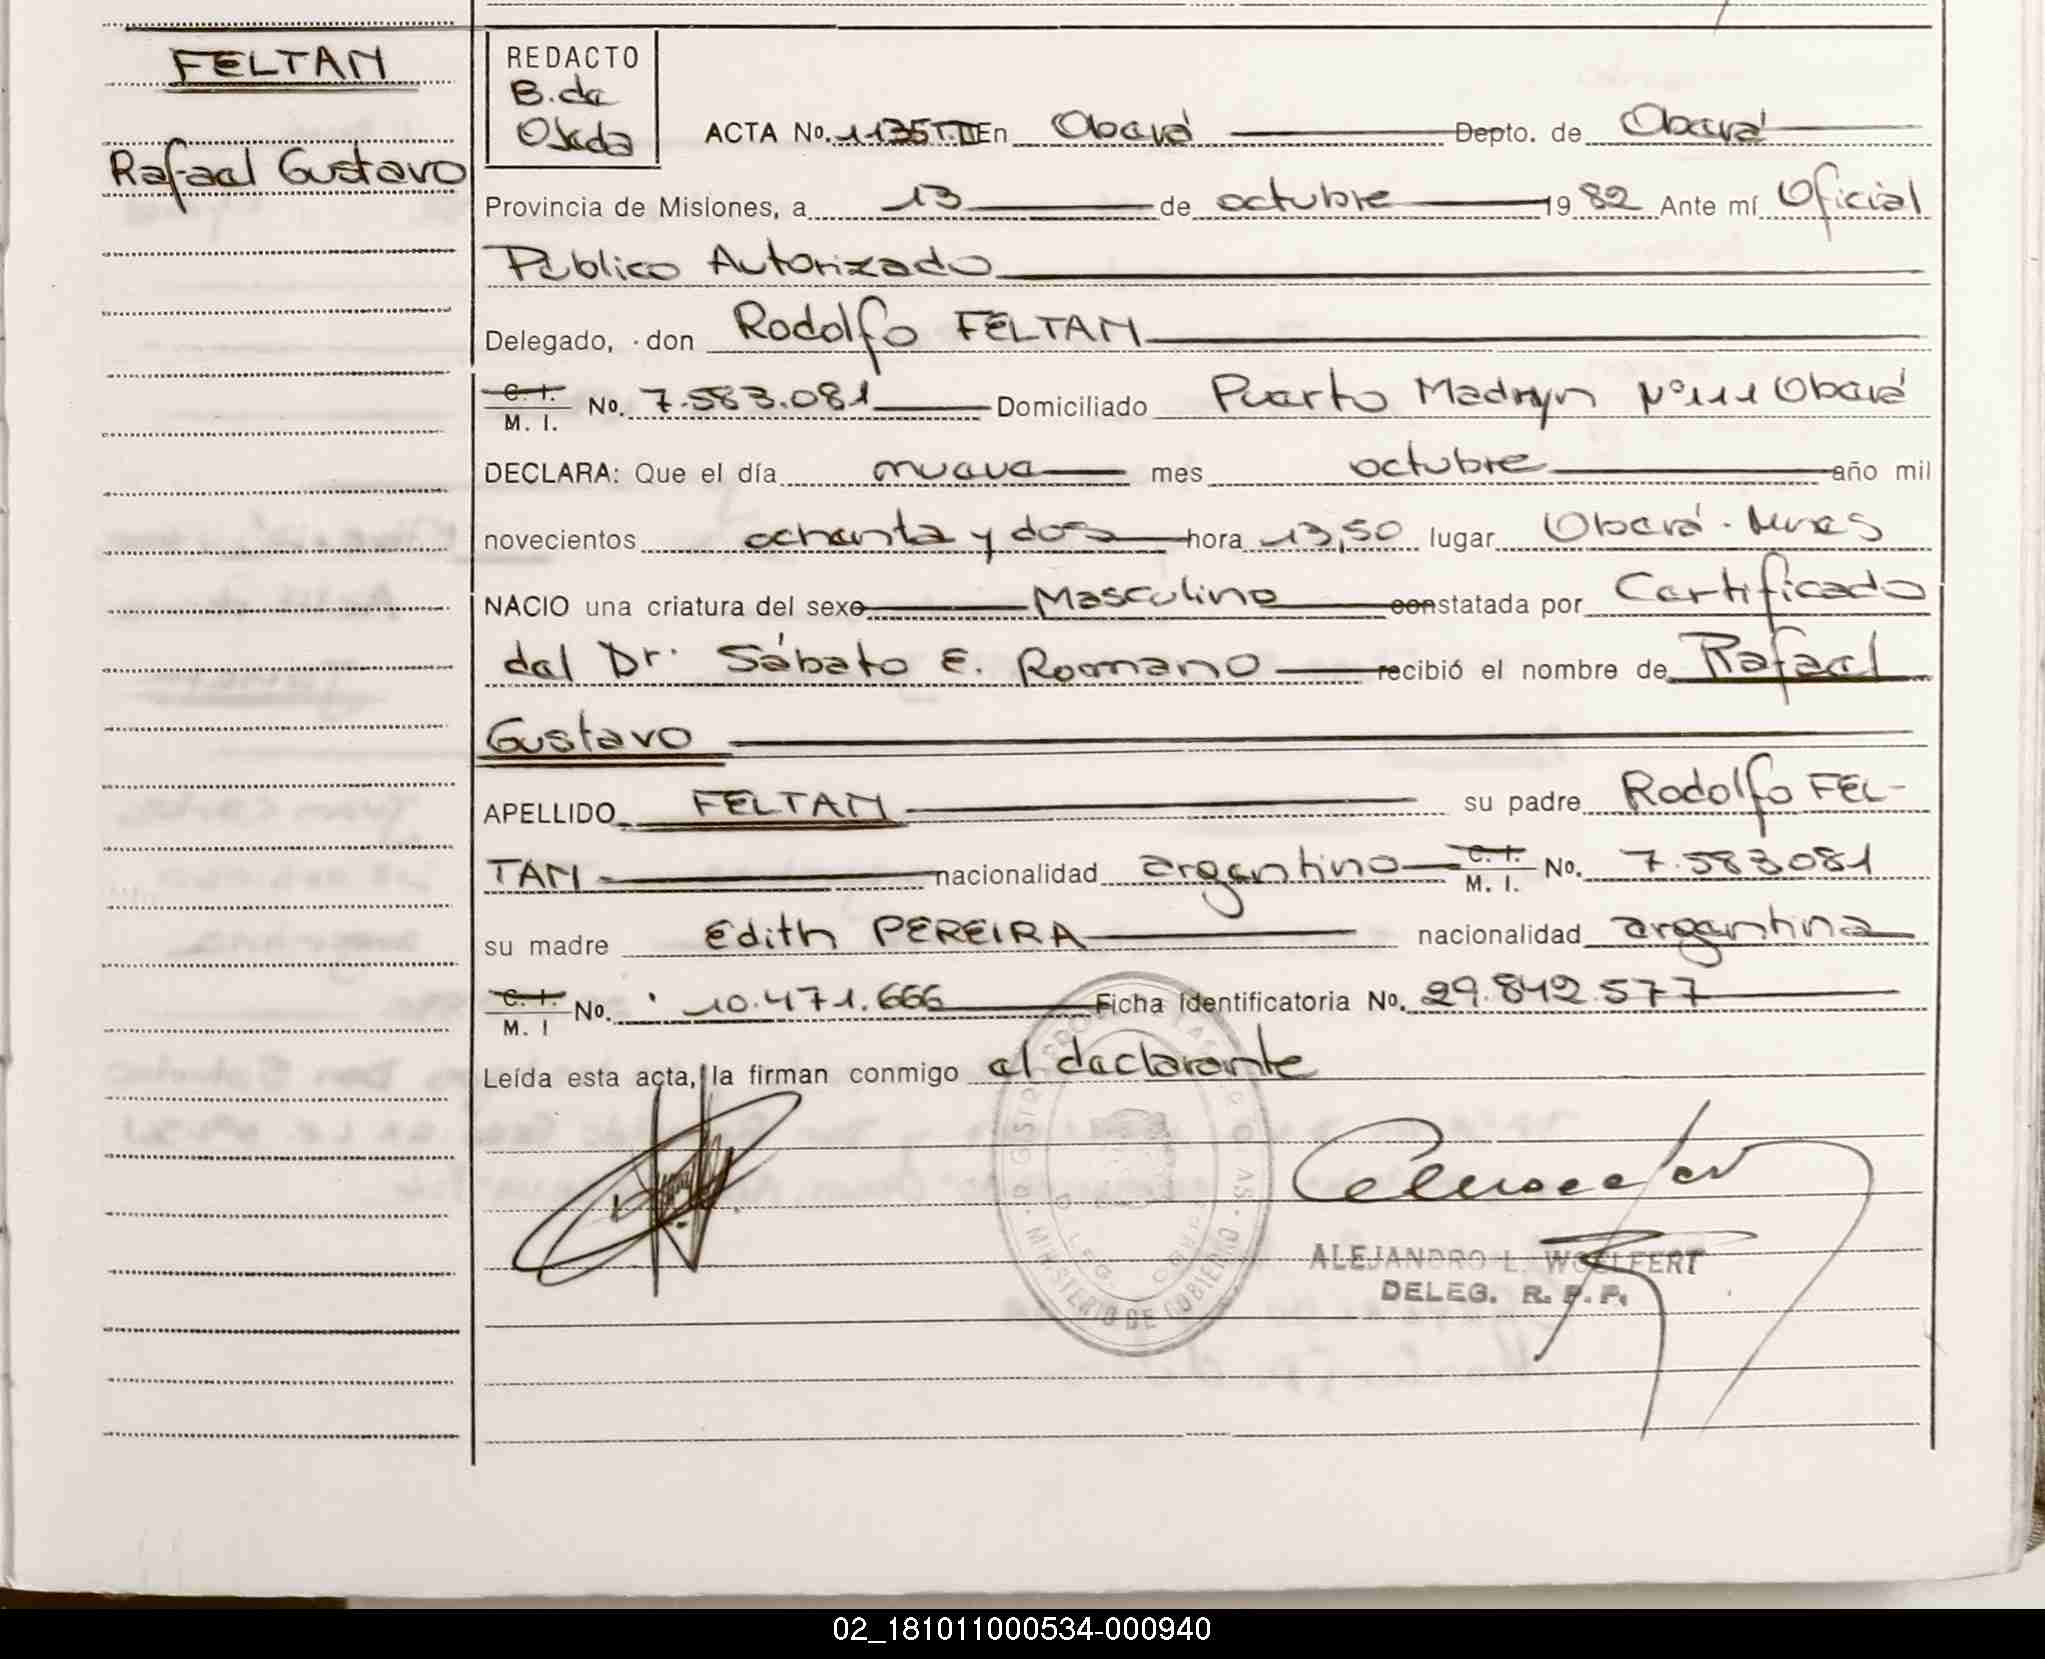 FELTAN
Rafael Gustavo
REDACTO
B. de
Ojeda
ACTA No. 1135 T. II En Oberá Depto. de Oberá
Provincia de Misiones, a 13 de octubre 1982 Ante mí Oficial
Público Autorizado
Delegado, don Rodolfo FELTAN
C. I. M. I. No. 7.583.081 Domiciliado Puerto Madryn Nº 111 Oberá
DECLARA: Que el día nueve mes octubre año mil
novecientos ochenta y dos hora 13,50 lugar Oberá - Mnes
NACIO una criatura del sexo Masculino constatada por Certificado
del Dr. Sábato E. Romano recibió el nombre de Rafael
Gustavo
APELLIDO FELTAN su padre Rodolfo FEL-
TAN nacionalidad argentino C. I. M. I. No. 7.583081
su madre Edith PEREIRA nacionalidad argentina
C. I. M. I No. 10.471.666 Ficha Identificatoria No. 29.842.577
Leída esta acta, la firman conmigo el declarante
MINISTERIO DE GOBIERNO
ALEJANDRO L. WOELFERT
DELEG. R. P. P.
02_181011000534-000940